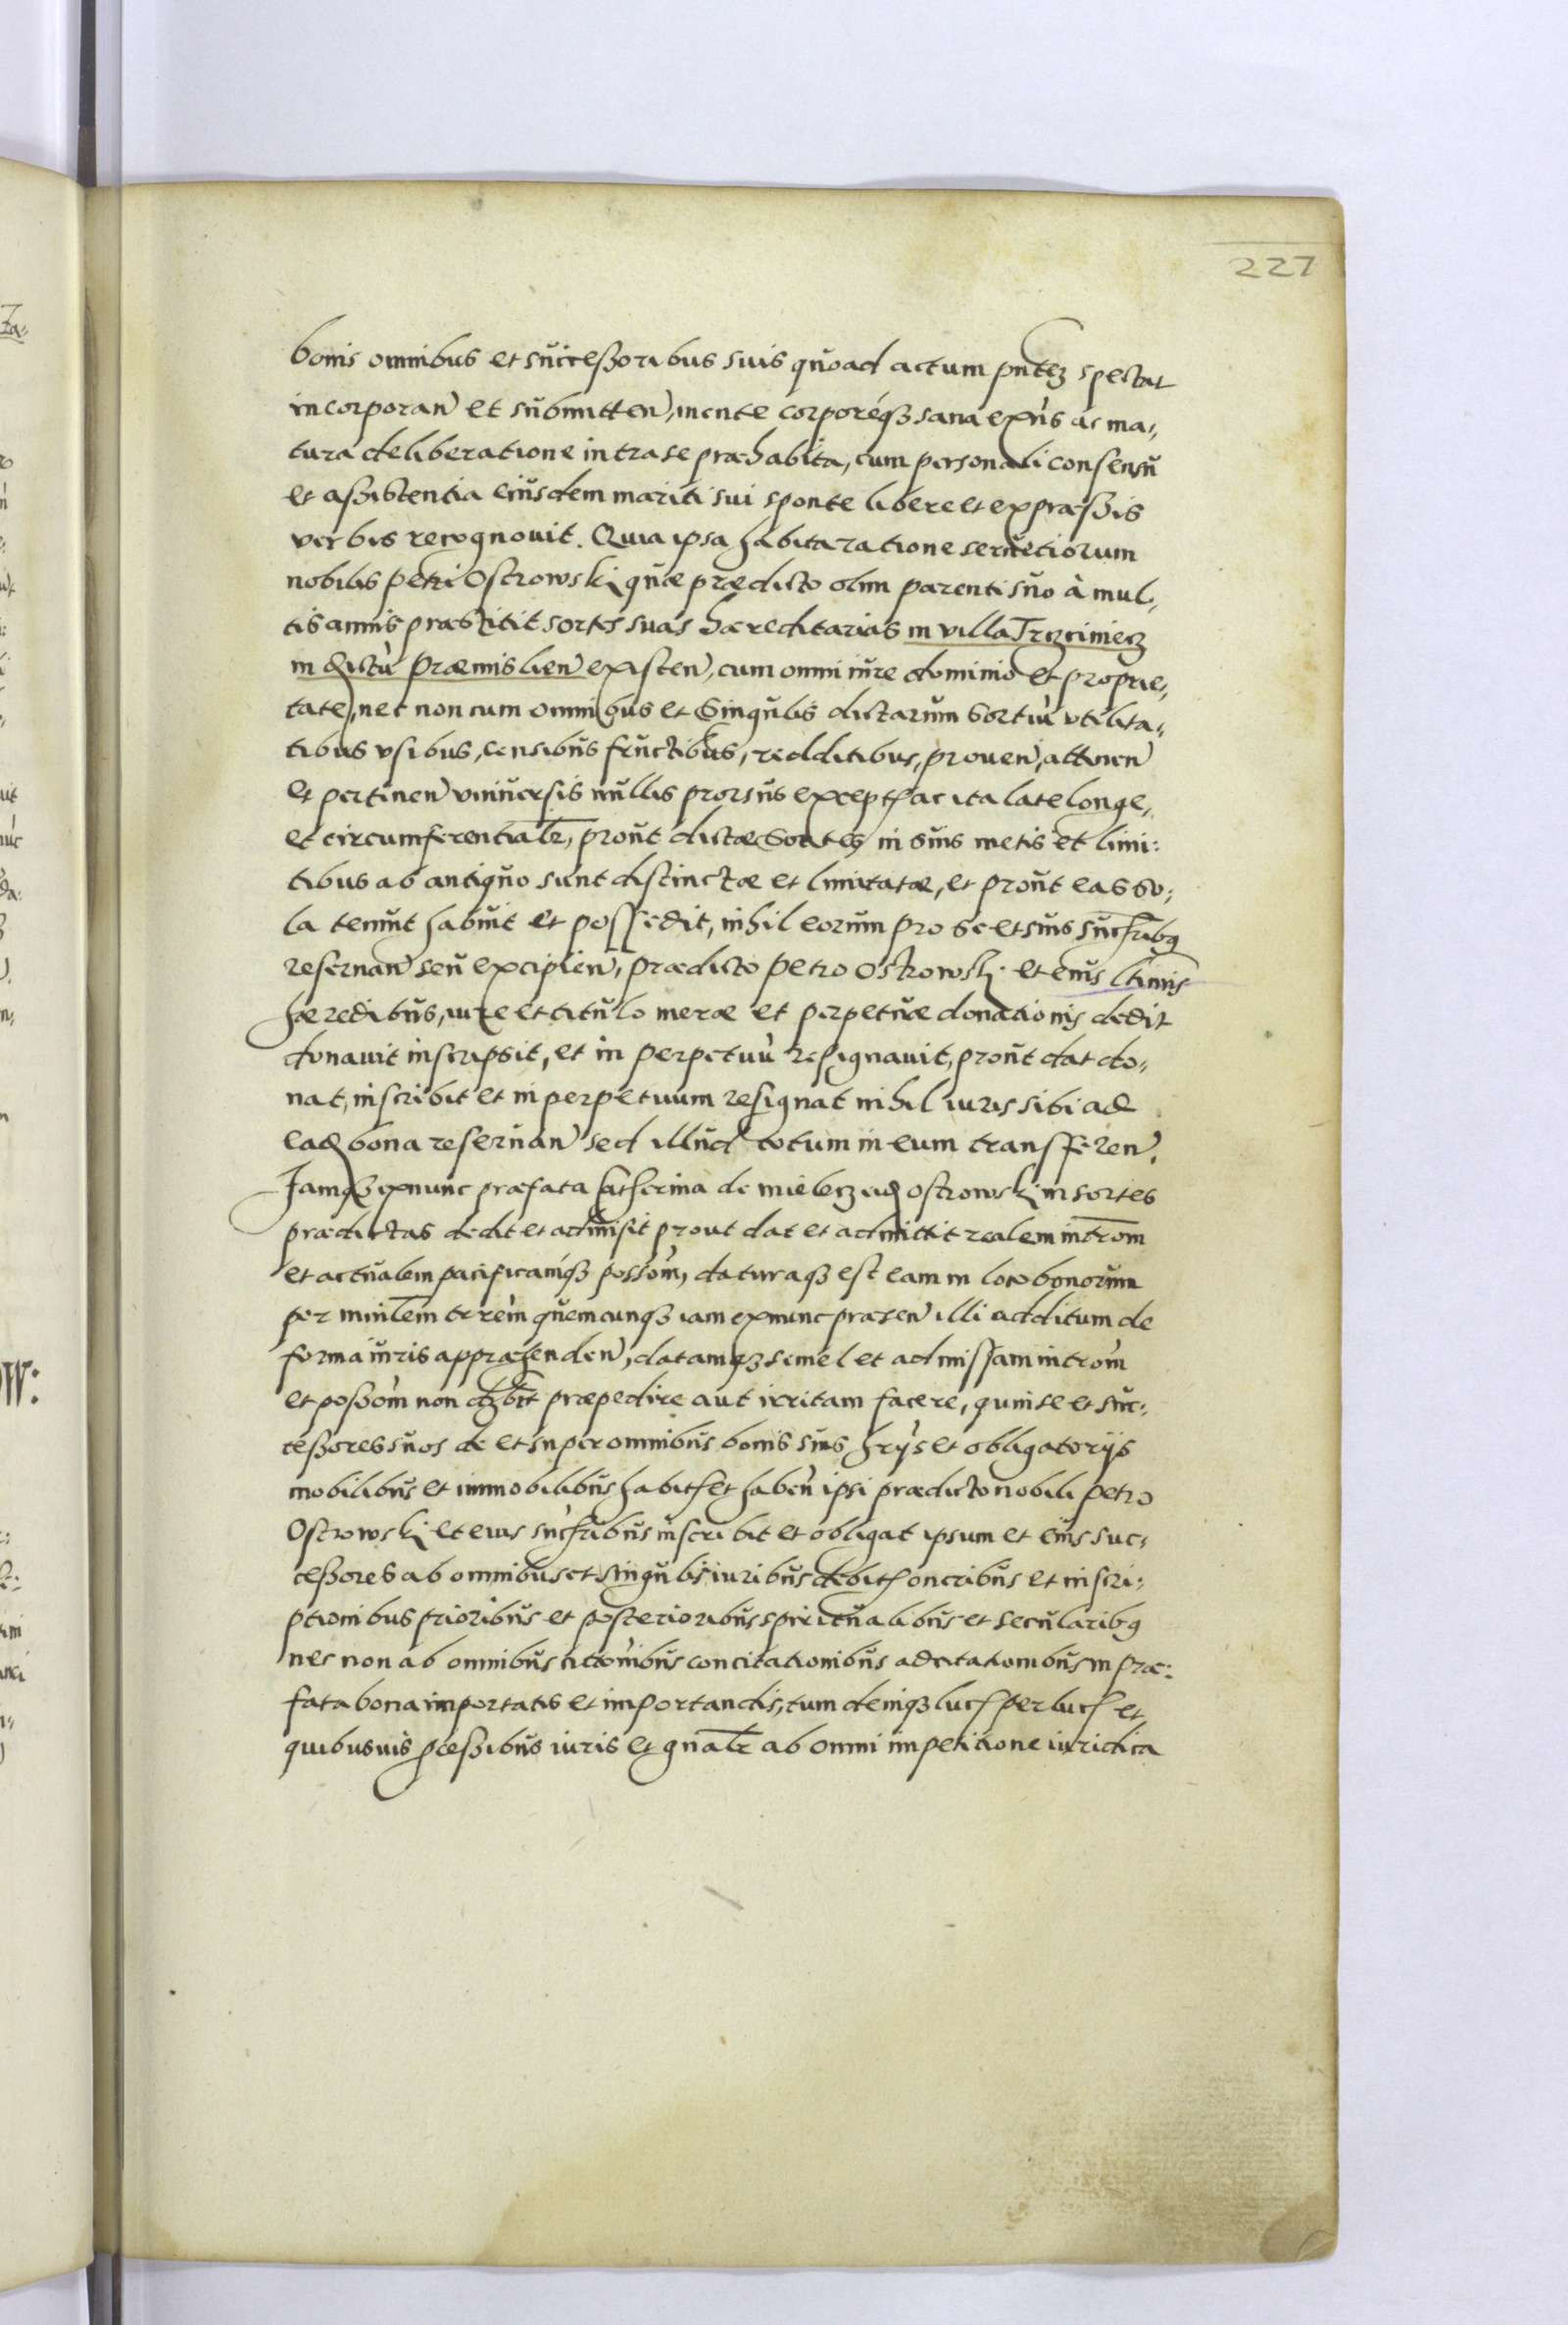 227
bonis omnibus et sũccessoribus suis qũoad actum pn̄tẽ spectat
incorporañ et sũbmitteñ, mente corporéq₃ sana exñs ac ma,
tura deliberatione intra se præhabita, cum personali consensũ
et assistentia eiũsdem mariti sui sponte libere et expræssis
verbis recognouit. Quia ipsa habita ratione seruitiorum
nobilis Petri Ostrowskj quæ prædicto olim parenti sũo à mul,
tis annis præstitit sortes suas hæreditarias in villa Trzciniecz
in districtù Præmislieñ existeñ, cum omni iũre dominio et proprie,
tate, nec non cum omnibus et singũlis dictarũm sortiũ vtilita,
tibus vsibus, censibũs frũctibus, redditibus, proueñ, attineñ
et pertineñ vniũersis nũllis prorsũs except͛ ac ita late longe,
et circumferentialr̄, proũt dictæ sortes in sũis metis et limi:
tibus ab antiqũo sũnt distinctæ et limitatæ, et proũt eas so:
la tenũit habũit et possedit, nihil eorũm pro se et sũis sũcc̄ribq
reserũañ seũ excipieñ, prædicto Petro Ostrowskj et eiũs l̄timis
hæredibũs, iure et titũlo meræ et perpetũæ donationis dedit
donauit inscripsit, et in perpetuũ resignauit, proũt dat do,
nat, inscribit et in perpetuum resignat nihil iuris sibi ad
ead bona reserũañ sed illũd totum in eum transffereñ.
Jamq₃ exnunc præfata Catherina de Mielecz eid Ostrowskj in sortes
prædictas dedit et admisit prout dat et admittit realem intr̄om
et actũalem pacificamq₃ possom̀, daturaq₃ est eam in loco bonorũm
per minl̄em terrem̀ qũemcunq₃ iam exnunc præseñ illi additum de
forma iũris appræhendeñ, datamq₃ semel et admissam introm̀
et possom̀ non dꝫbit præpedire aut irritam facere, quin se et sũc,
cessores sũos de et sũper omnibũs bonis sũis hrỹs et obligatorijs
mobilibũs et immobilibũs habit͛ et habeǹ ipsi prædicto nobili Petro
Ostrowskj et eius sũcc̄ribũs inscribit et obligat ipsum et eiũs suc,
cessores ab omnibus et singũlis iuribũs debit͛ oneribũs et inscri:
ptionibus prioribũs et posterioribũs spiritũalibũs et secũlaribq
nec non ab omnibũs citatom̀ibũs concitationibũs adcitationibũs in præ:
fata bona importatis et importandis, tum deniq₃ lucr͛ perlucr͛ et
quibusuis ꝓcessibũs iuris et gn̄alr̄ ab omni impetitione iuridica